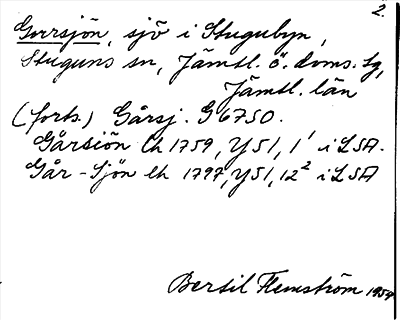 2.
Gorrsjön, sjö i Stugubyn,
Stuguns sn, Jämtl. ö. doms. tg,
Jämtl. län
(forts.) Gårsj. G 6750.
Gårsiön Ch 1759, Y51, 1¹ i LSA.
Går-Sjön lh 1797, Y51, 12² i LSA
Bertil Flemström 1954